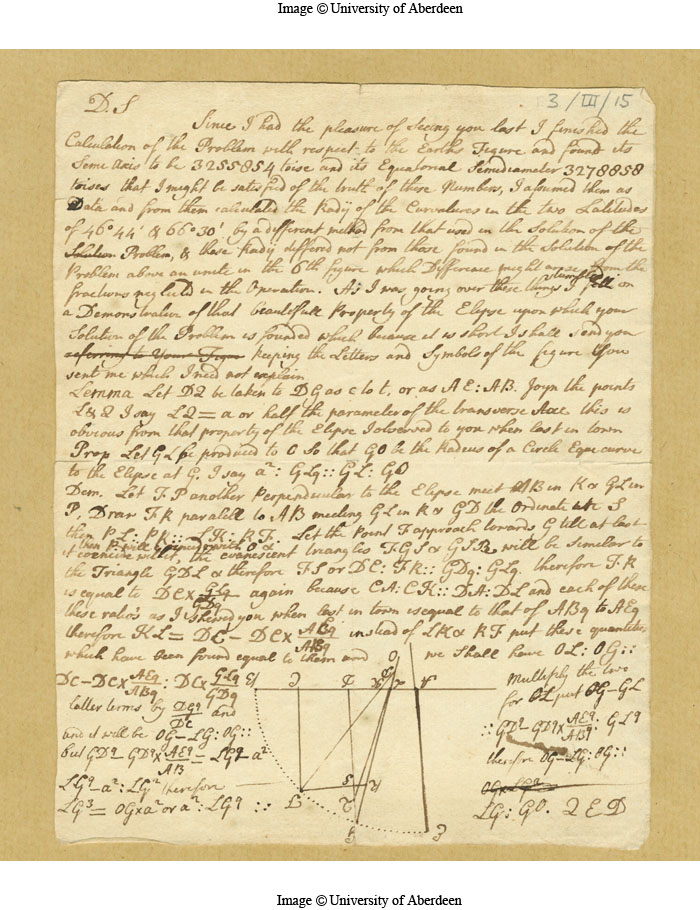 Image © University of Aberdeen
3/III/15
D. S
Since I had the pleasure of Seeing you last I finished the
Calculation of the Problem with respect to the Earths Figure and found its
Semi Axis to be 3255854 toise and its Equatorial Semidiameter 3278858
toises that I might be satisfied of the truth of these Numbers, I assumed them as
Data and from them calculated the Radij of the Curvatures in the two Latitudes
of 46° 44' & 66° 30' by a different method from that used in the Solution of the
Solution Problem, & these Radij differed not from those found in the Solution of the
Problem above an unite in the 6th figure which Difference might arise from the
fractions neglected in the Operation. As I was going over these things I stumbled fell on
a Demonstration of that beautifull Property of the Elipse upon which your
Solution of the Problem is founded which because it is short I shall send you
referring to Your Figure keeping the Letters and Symbols of the figure you
sent me which I need not explain
Lemma Let DQ be taken to DG as c to t, or as AE : AB. Joyn the points
L & Q I say LQ = a or half the parameter of the transverse Axe this is
obvious from that property of the Elipse I observed to you when last in town
Prop Let GL be produced to O so that GO be the Radius of a Circle Equicurve
to the Elipse at G. I say a² : GLq :: GL : GO
Dem. Let F.P another Perpendicular to the Elipse meet AB in K & GL in
P, Draw FR paralell to AB meeting GL in R & GD the Ordinate in S
then PL : PR :: LK : RF. Let the Point F approach towards G till at last
it coincide with it, then P will coincide with O & the evanescent triangles FGS & GSR will be similar to
the Triangle GDL & therefore FS or DC : FR :: GDq : GLq. therefore FR
is equal to DC x GLq/GDq again because CA : CK :: DA : DL and each of these
these ratio's as I shewed you when last in town is equal to that of ABq to AEq
therefore KL = DC − DC x AEq/ABq instead of LK & RF put these quantities
which have been found equal to them and we shall have OL : OG ::
DC − DC x AEq/ABq : DC x GLq/GDq Multiply the two
latter terms by DGq/DC and for OL put OG − GL
and it will be OG − LG : OG :: :: GDq − GDq x AEq/ABq : GLq
but GDq − GDq x AEq/AB = LGq − a² therefore OG − LG : OG ::
LGq − a² : LGq therefore
LG³ = OG x a² or a² : LGq :: LG : GO. Q E D
Image © University of Aberdeen